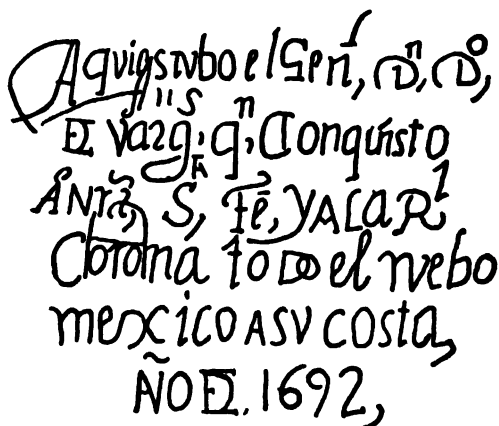 Aqui estvbo el Genl, Dn, Do,
DE Vargas, qn, Conquisto
A Ntra, S, Fe, Y A La Rl
Corona toDo el nvebo
mexico A SV costa,
ÑO DE, 1692,